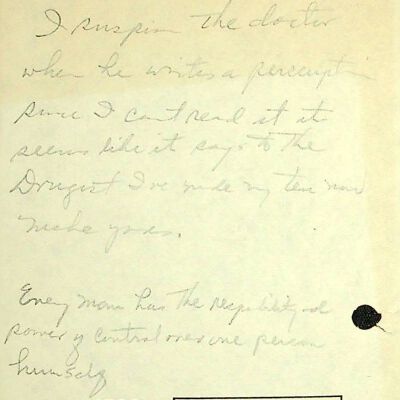 I suspion the doctor
when he writes a perception
since I cant read it its
seems like it says to the
Drugist I've made my ten now
make yours.
Every man has the respibility and
power of control over one person
himself